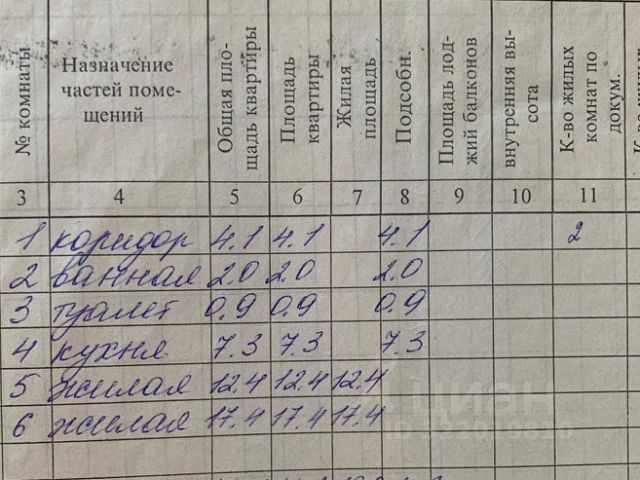 № комнаты Назначение частей помещений Общая площадь квартиры Площадь квартиры Жилая площадь Подсобн. Площадь лоджий балконов внутренняя высота К-во жилых комнат по докум.
3 4 5 6 7 8 9 10 11
1 коридор 4.1 4.1 4.1 2
2 ванная 2.0 2.0 2.0
3 туалет 0.9 0.9 0.9
4 кухня 7.3 7.3 7.3
5 жилая 12.4 12.4 12.4
6 жилая 17.4 17.4 17.4
ЦИАН